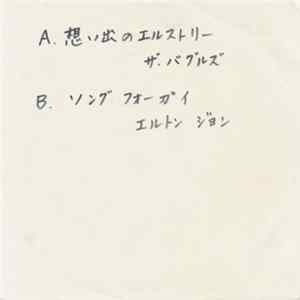 A. 想い出のエルストリー
ザ・バグルズ
B. ソング フォー ガイ
エルトン ジョン